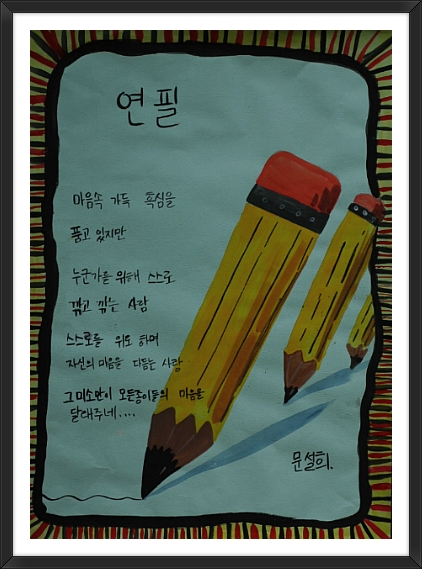 연필
마음속 가득 흑심을
품고 있지만
누군가를 위해 스스로
깎고 깎는 사람
스스로를 위로 하며
자신의 마음을 다듬는 사람
그 미소만이 모든종이들의 마음을
달래주네....
문설희.